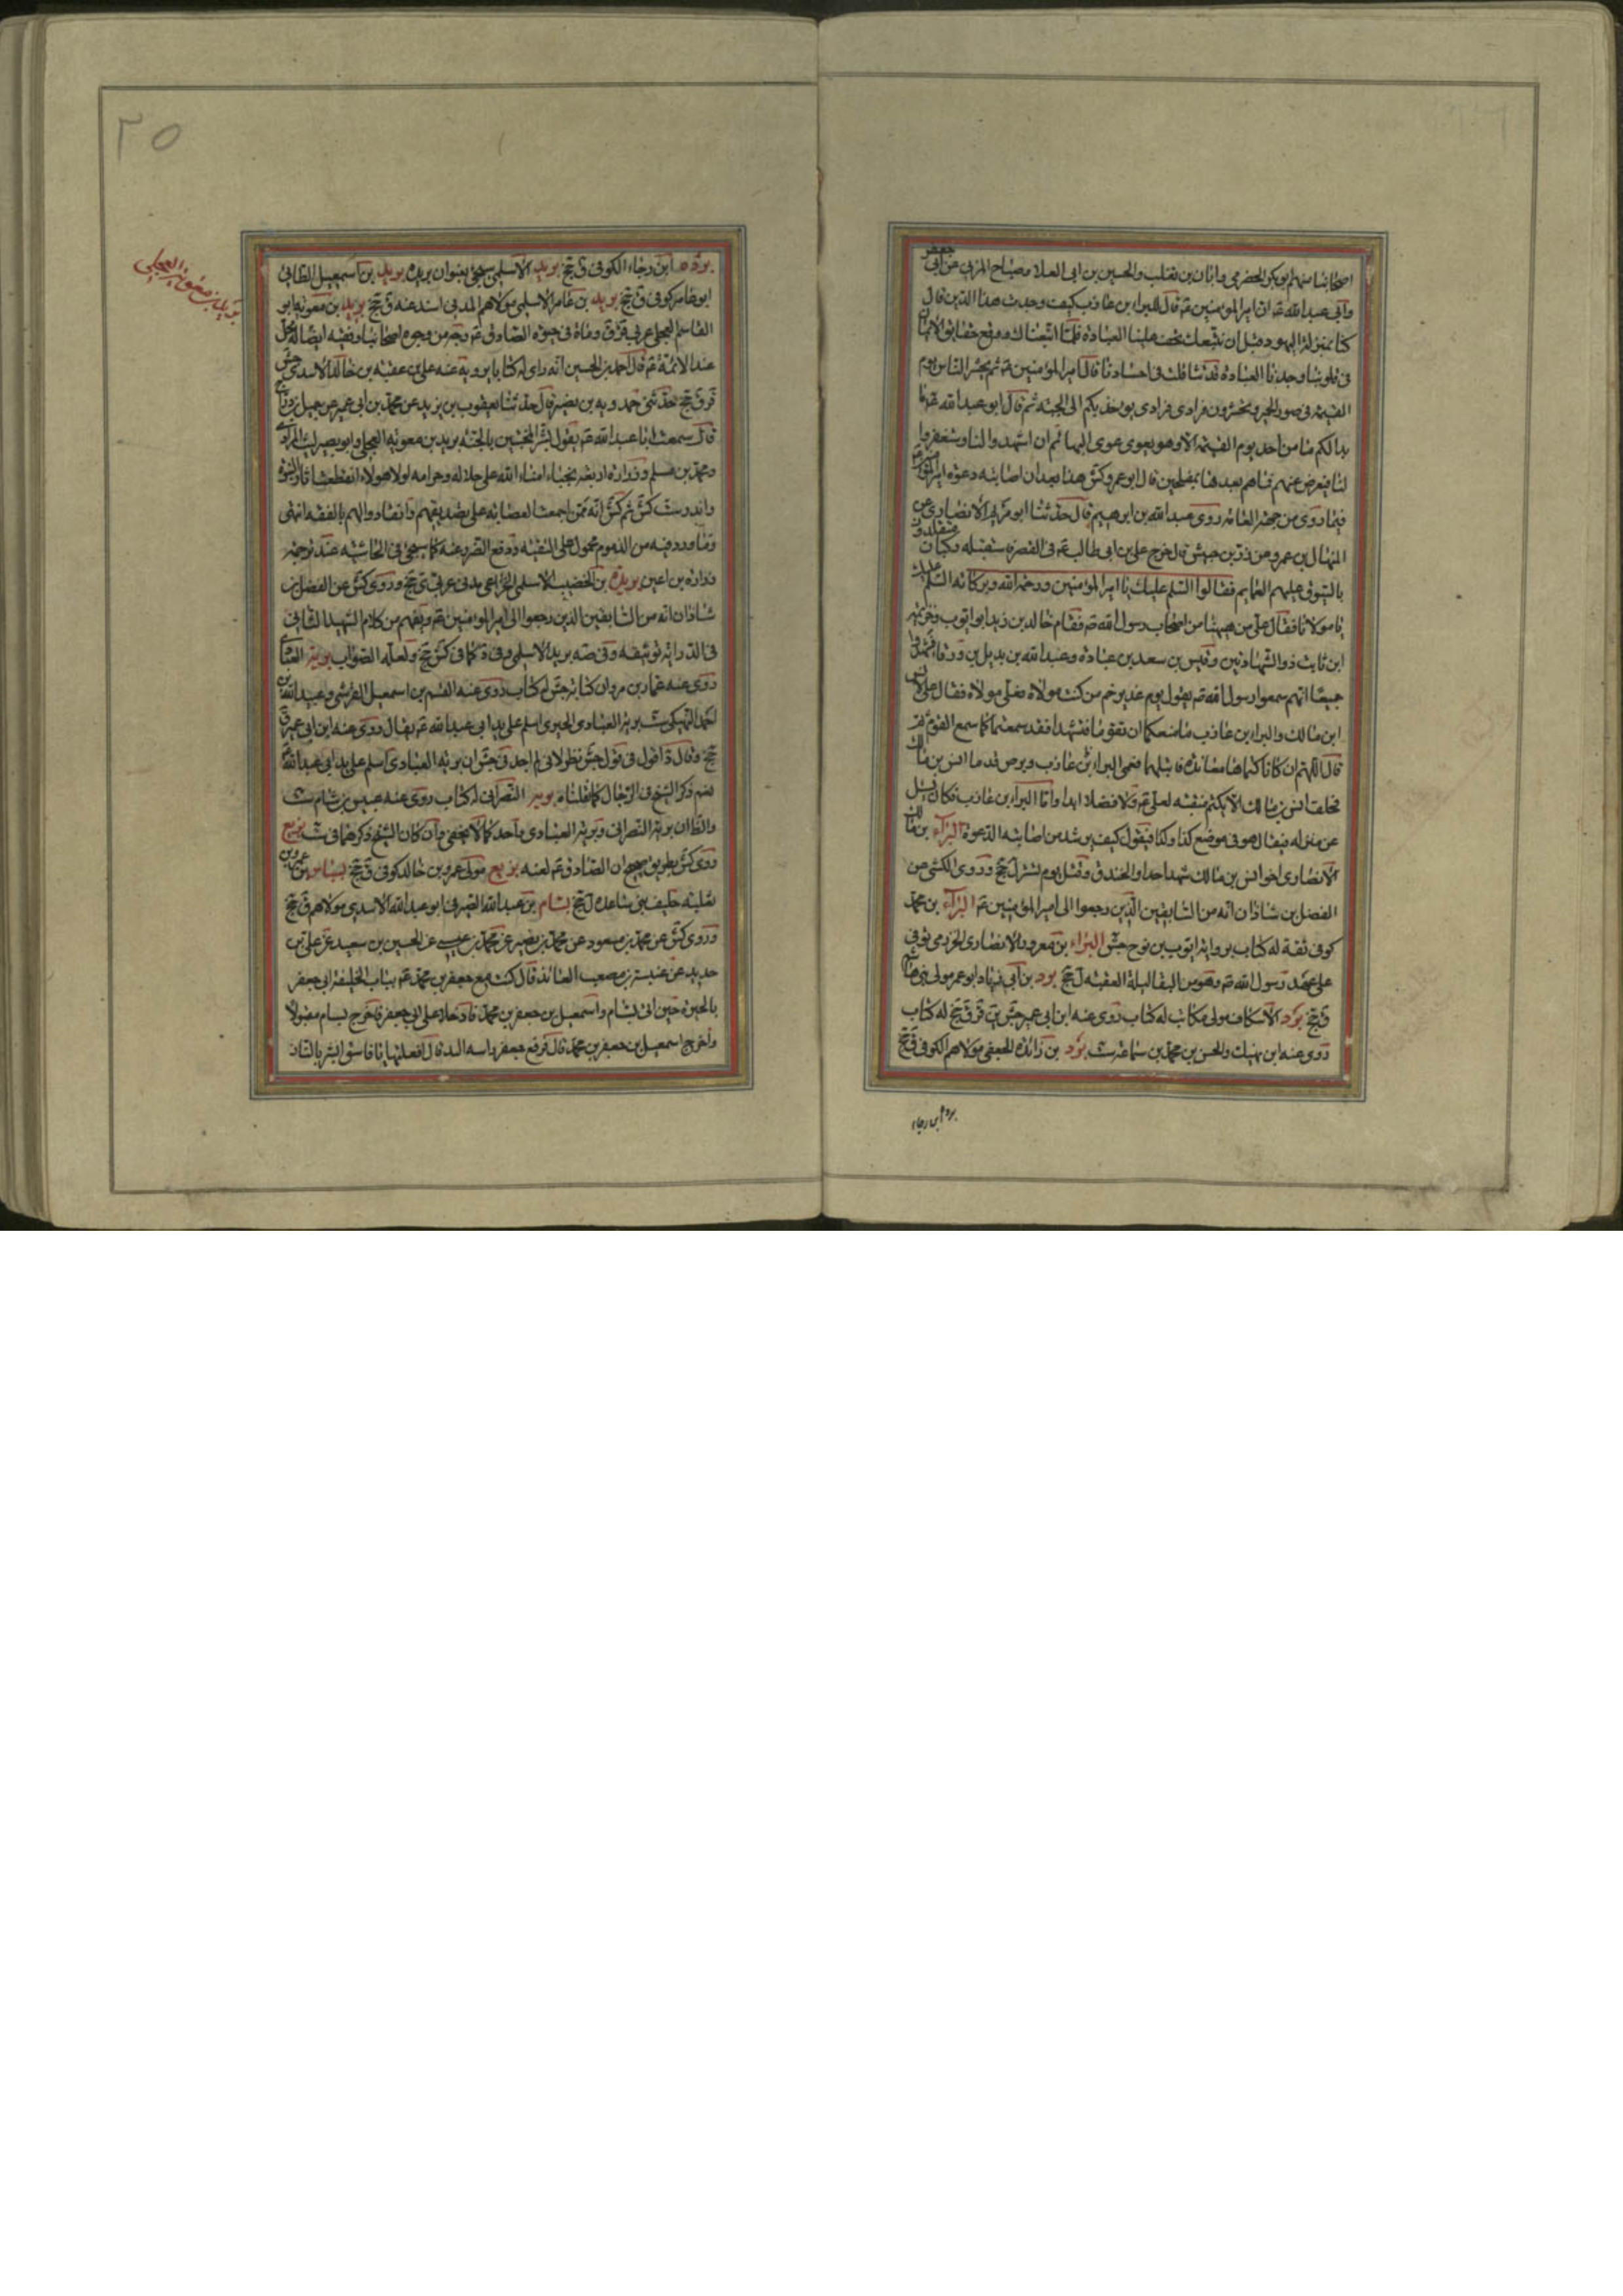 اصحابنا منهم ابو بكر الحضرمي وابان بن تغلب والحسين بن ابي العلا وصباح المزني عن ابي جعفر
وابي عبد الله عم ان امير المؤمنين عم قال للبراء بن عازب كيف وجدت هذا الدين قال
كنا بمنزلة اليهود قبل ان نتبعك تخف علينا العبادة فلما اتبعناك ووقع حقايق الايمان
في قلوبنا وجدنا العبادة قد تثاقلت في اجسادنا قال امير المؤمنين عم فمن ثم يحشر الناس يوم
القيمة في صور الحمير وتحشرون فرادى فرادى يؤخذ بكم الى الجنة ثم قال ابو عبد الله عم ما
بدا لكم ما من احد يوم القيمة الا وهو يعوي عوى البهائم ان اشهدوا لنا واستغفروا
لنا فنعرض عنهم فما هم بعدها بمفلحين قال ابو عمرو كش هذا بعد ان اصابته دعوة امير المؤمنين عم
فيما روى من جهة العامة روى عبد الله بن ابرهيم قال حدثنا ابو مريم الانصاري عن
المنهال بن عمرو عن زر بن حبيش قال خرج علي بن ابي طالب عم من القصر فاستقبله ركبان متقلدون
بالسيوف عليهم العمايم فقالوا السلم عليك يا امير المؤمنين ورحمة الله وبركاته السلم عليك
يا مولانا فقال علي من ههنا من اصحاب رسول الله ص فقام خالد بن زيد ابو ايوب وخزيمة
ابن ثابت ذو الشهادتين وقيس بن سعد بن عبادة وعبد الله بن بديل بن ورقا فشهدوا
جميعا انهم سمعوا رسول الله ص يقول يوم غدير خم من كنت مولاه فعلي مولاه فقال علي لانس
ابن مالك والبراء بن عازب ما منعكما ان تقوما فتشهدا فقد سمعتما كما سمع القوم ثم
قال اللهم ان كانا كتماها معاندة فابتلهما فعمي البراء بن عازب وبرص قدما انس بن مالك
فحلف انس بن مالك الا يكتم منقبة لعلي عم ولا فضلا ابدا واما البراء بن عازب فكان يسئل
عن منزله فيقال هو في موضع كذا وكذا فيقول كيف يرشد من اصابته الدعوة البراء بن مالك
الانصاري اخو انس بن مالك شهد احدا والخندق وقتل يوم تستر ل جخ وروى الكشي عن
الفضل بن شاذان انه من السابقين الذين رجعوا الى امير المؤمنين عم البراء بن محمد
كوفي ثقة له كتاب يرويه ايوب بن نوح جش البراء بن معرور الانصاري الخزرجي توفي
على عهد رسول الله ص وهو من النقباء ليلة العقبة ل جخ برد بن ابي زياد ابو عمر مولى بني هاشم
ق جخ برد الاسكاف مولى مكاتب له كتاب روى عنه ابن ابي عمير جش ين قر ق جخ له كتاب
روى عنه ابن نهيك والحسن بن محمد بن سماعة ست برد بن زائدة الجعفي مولاهم الكوفي ق جخ
برده ابن رجاء
٢٥
بريد بن معوية العجلي
برده ابن رجاء الكوفي ق جخ بريد الاسلمي سيجئ بعنوان بريدة بريد بن اسمعيل الطائي
ابو عامر كوفي ق جخ بريد بن عامر الاسلمي مولاهم المدني اسند عنه ق جخ بريد بن معوية ابو
القاسم العجلي عربي قر ق وماة في حيوة الصادق عم وجه من وجوه اصحابنا وفقيه ايضا له محل
عند الائمة عم قال احمد بن الحسين انه راى له كتابا يرويه عنه علي بن عقبة بن خالد الاسدي جش
قر ق جخ حدثني حمدويه بن نصير قال حدثنا يعقوب بن يزيد عن محمد بن ابي عمير عن جميل بن دراج
قال سمعت ابا عبد الله عم يقول بشر المخبتين بالجنة بريد بن معوية العجلي وابو بصير ليث المرادي
ومحمد بن مسلم وزرارة اربعة نجباء امناء الله على حلاله وحرامه لولا هولاء انقطعت اثار النبوة
واندرست كش ثم كش انه ممن اجمعت العصابة على تصديقهم وانقادوا لهم بالفقه انتهى
وما ورد فيه من الذموم محمول على التقية ودفع الضرر عنه كما سيجئ في الحاشية عند ترجمة
زرارة بن اعين بريدة بن الخضيب الاسلمي الخزاعي مدني عربي ي جخ وروى كش عن الفضل بن
شاذان انه من السابقين الذين رجعوا الى امير المؤمنين عم ويفهم من كلام الشهيد الثاني
في الدراية توثيقه وفي صه بريد الاسلمي وفي د كما في كش جخ ولعله الصواب بريه العبادي
روى عنه عمار بن مروان كتابه جش له كتاب روى عنه القسم بن اسمعيل القرشي وعبيد الله بن
احمد النهيكي ست بريه العبادي الحيري اسلم على يد ابي عبد الله عم يقال روى عنه ابن ابي عمير ق
جخ وقال د اقول في قول جش نظر لاني لم اجد في جش ان بريه العبادي اسلم على يد ابي عبد الله عم
نعم ذكر الشيخ في الرجال كما نقلناه بريه النصراني له كتاب روى عنه عبيس بن هشام ست
والظ ان بريه النصراني وبريه العبادي واحد كما لا يخفى وان كان الشيخ ذكرهما في ست بزيع
روى كش بطريق صحيح ان الصادق عم لعنه بزيع مولى عمرو بن خالد كوفي ق جخ بسباس بن عمرو بن
ثعلبة حليف بني ساعدة ل جخ بسام بن عبد الله الصيرفي ابو عبد الله الاسدي مولاهم ق جخ
وروى كش عن محمد بن مسعود عن محمد بن نصير عن محمد بن عيسى عن الحسين بن سعيد عن علي بن
حديد عن عنبسة بن مصعب العابد قال كنت مع جعفر بن محمد عم بباب الخليفة ابي جعفر
بالحيرة حين اتى بسام واسمعيل بن جعفر بن محمد فادخلا على ابي جعفر فاخرج بسام مقتولا
واخرج اسمعيل بن جعفر بن محمد قال فرفع جعفر راسه اليه قال افعلتها يا فاسق ابشر بالنار